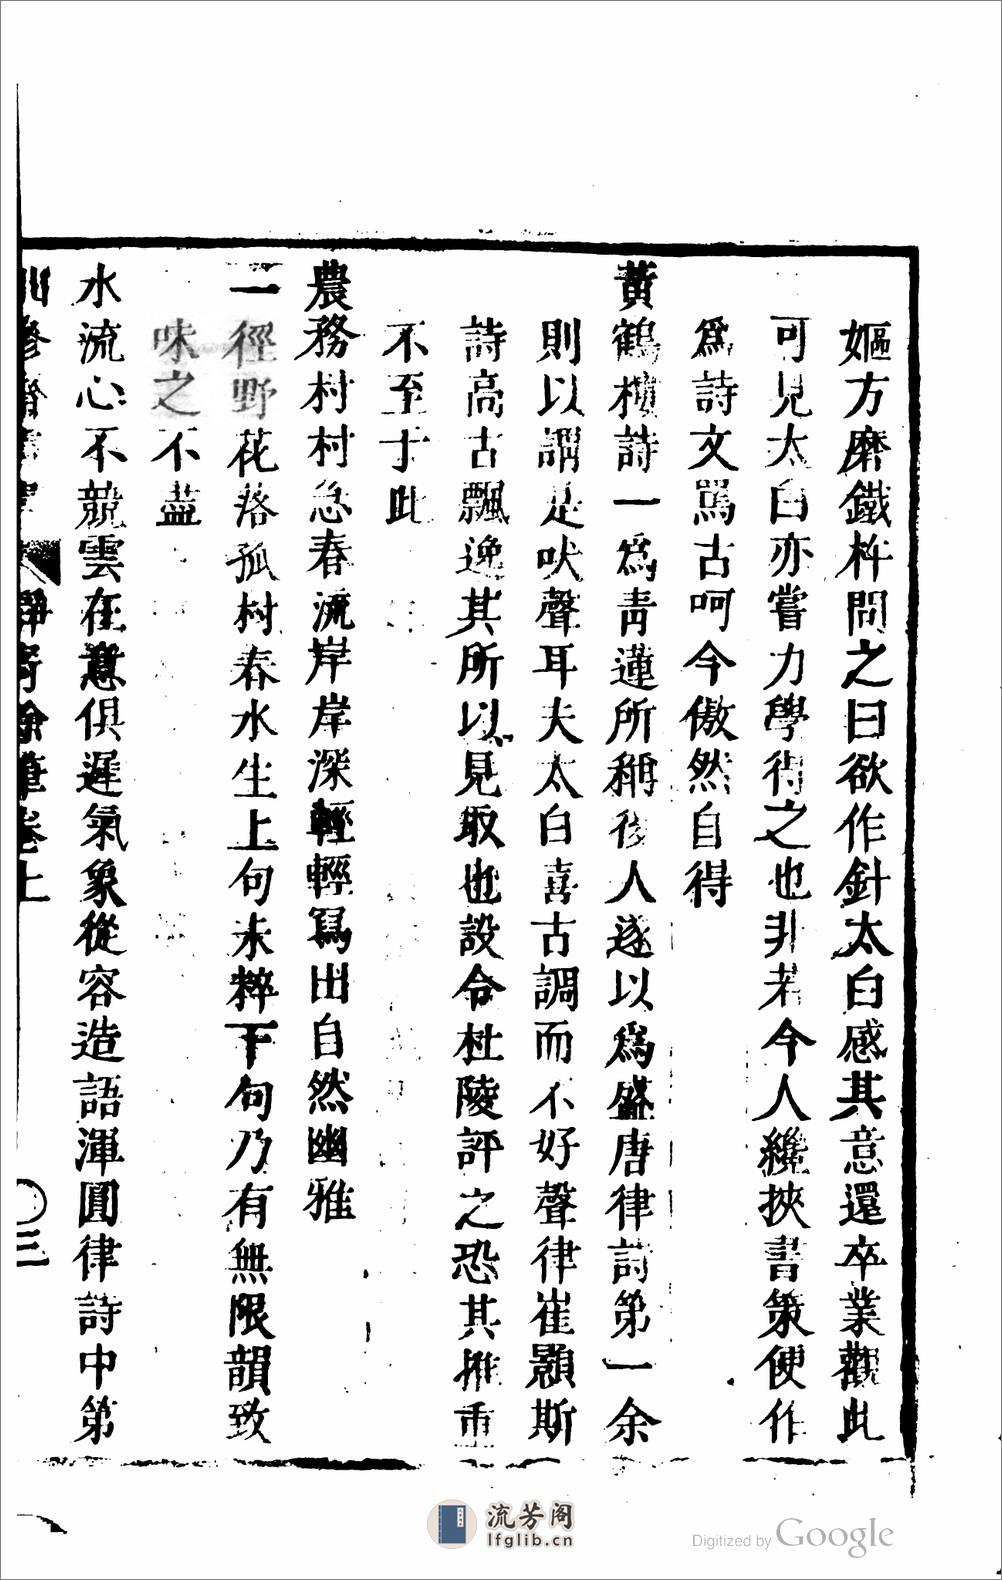 嫗方磨鐵杵問之曰欲作針太白感其意還卒業觀此
可見太白亦嘗力學得之也非若今人纔挾書策便作
爲詩文罵古呵今傲然自得
黃鶴樓詩一爲青蓮所稱後人遂以爲盛唐律詩第一余
則以謂是吠聲耳夫太白喜古調而不好聲律崔顥斯
詩高古飄逸其所以見取也設令杜陵評之恐其推重
不至于此
農務村村急春流岸岸深輕輕寫出自然幽雅
一徑野花落孤村春水生上句未粹下句乃有無限韻致
味之不盡
水流心不競雲在意俱遲氣象從容造語渾圓律詩中第
餘筆卷上
三
流芳阁
lfglib.cn
Digitized by Google